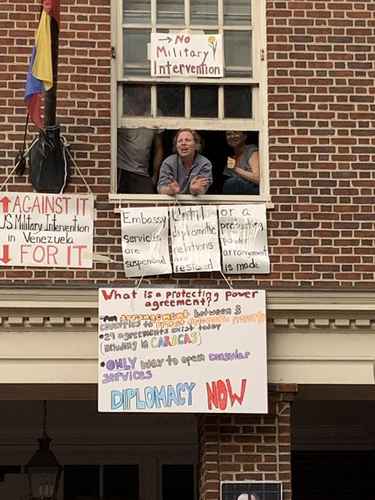 → NO
Military
Intervention
↑ AGAINST IT
US Military Intervention
in Venezuela
↓ FOR IT
Embassy
Services
are
suspended
Until
diplomatic
relations
are
resi
or a
protecting
power
arrangement
is made
What is a protecting power
agreement?
arrangement between 3
countries to
• 29 agreements exist today
including in CARACAS)
• ONLY way to open consular
services
DIPLOMACY NOW